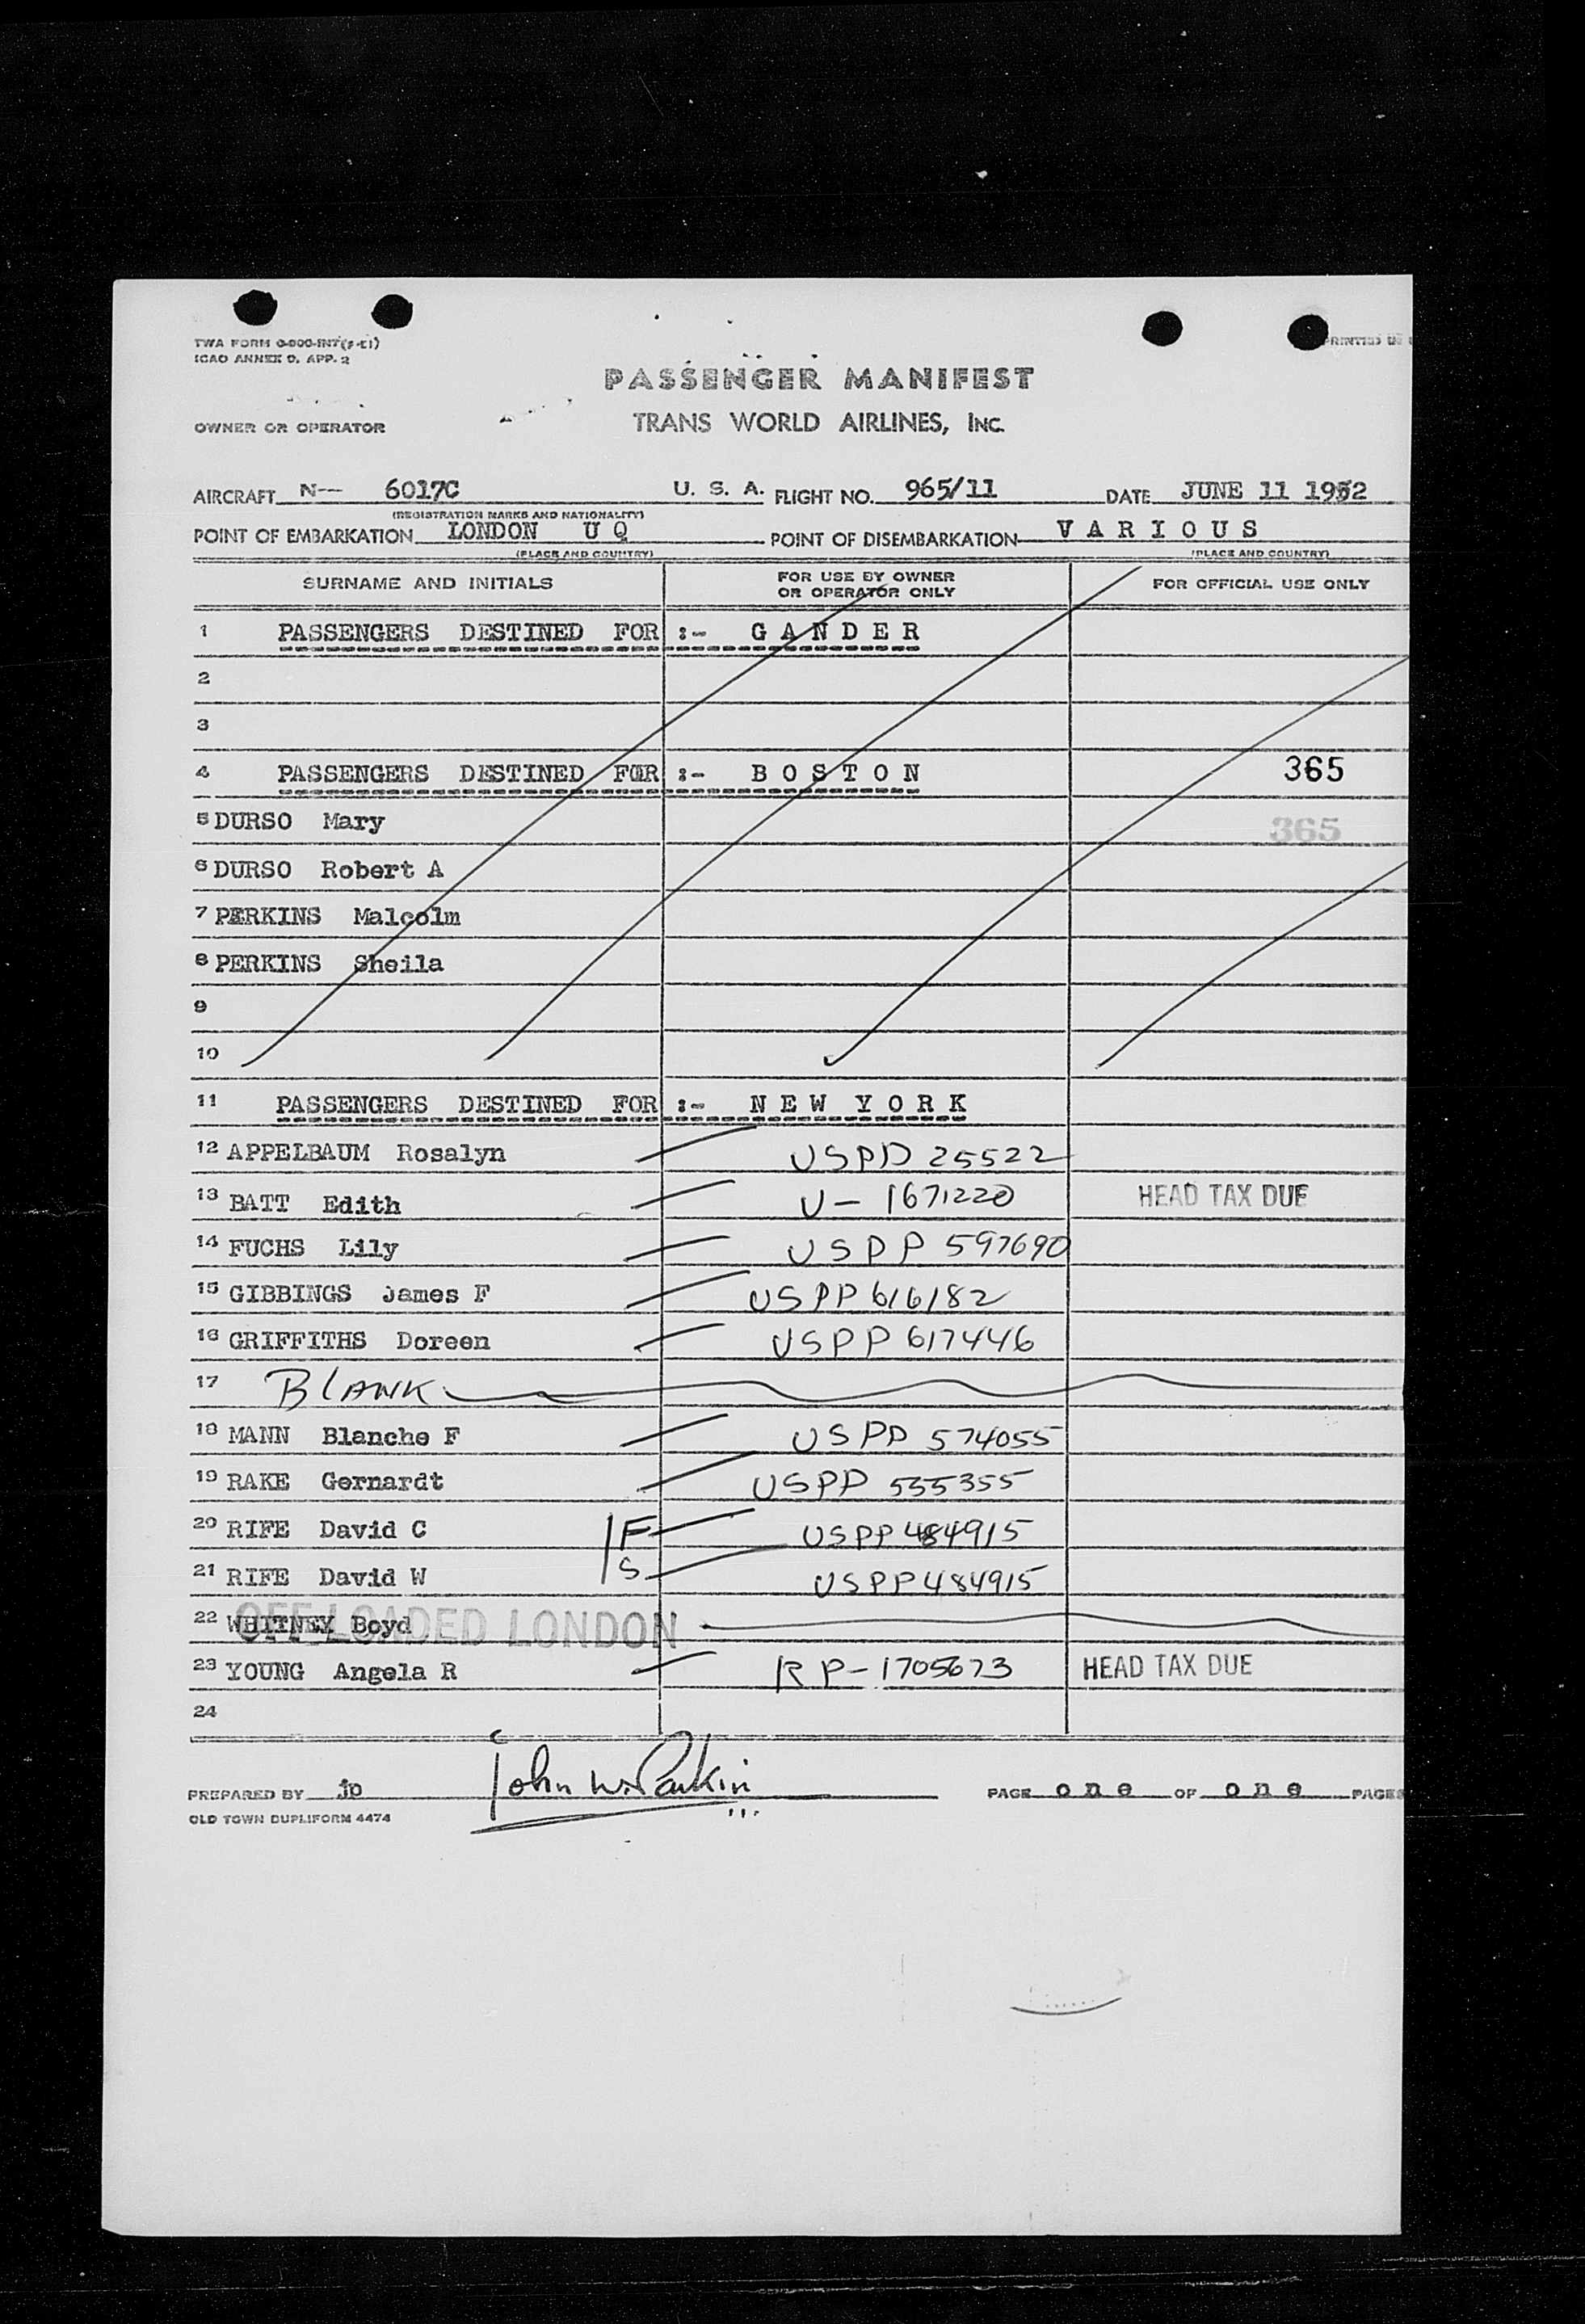 TWA FORM 0-800-INT(F-EI)
ICAO ANNEX 9, APP. 2
PRINTED IN
PASSENGER MANIFEST
OWNER OR OPERATOR TRANS WORLD AIRLINES, INC.
AIRCRAFT N-- 6017C U. S. A. FLIGHT NO. 965/11 DATE JUNE 11 1952
(REGISTRATION MARKS AND NATIONALITY)
POINT OF EMBARKATION LONDON U Q POINT OF DISEMBARKATION V A R I O U S
(PLACE AND COUNTRY) (PLACE AND COUNTRY)
SURNAME AND INITIALS FOR USE BY OWNER OR OPERATOR ONLY FOR OFFICIAL USE ONLY
1 PASSENGERS DESTINED FOR :- G A N D E R
2
3
4 PASSENGERS DESTINED FOR :- B O S T O N 365
5 DURSO Mary 365
6 DURSO Robert A
7 PERKINS Malcolm
8 PERKINS Sheila
9
10
11 PASSENGERS DESTINED FOR :- N E W Y O R K
12 APPELBAUM Rosalyn USPP 25522
13 BATT Edith U- 1671220 HEAD TAX DUE
14 FUCHS Lily USPP 597690
15 GIBBINGS James F USPP 616182
16 GRIFFITHS Doreen USPP 617446
17 BLANK
18 MANN Blanche F USPP 574055
19 RAKE Gernardt USPP 535355
20 RIFE David C F USPP 484915
21 RIFE David W S USPP 484915
22 WHITNEY Boyd OFF-LOADED LONDON
23 YOUNG Angela R RP-1705673 HEAD TAX DUE
24
PREPARED BY jp John W. Parkin PAGE one OF one PAGES
OLD TOWN DUPLIFORM 4474